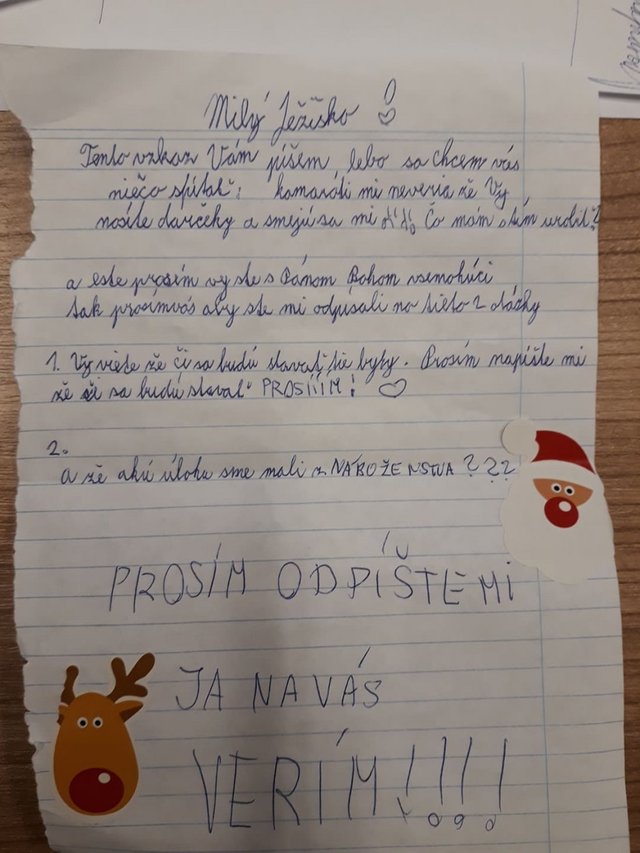 Milý Ježiško !
Tento vzkaz Vám píšem, lebo sa chcem vás
niečo spítať: kamaráti mi neveria že Vy
nosíte darčeky a smejú sa mi Čo mám s tím urobiť?
a este prosím vy ste s Pánom Bohom vsemohúci
tak prosímvás aby ste mi odpísali na tieto 2 otázky
1. Vy viete že či sa budú stavať tie byty. Prosím napíšte mi
že či sa budú stavať PROSÍÍÍM! ♡
2.
A že akú úlohu sme mali z NÁBOŽENSTVA ???
PROSÍM ODPÍŠTE MI
JA NA VÁS
VERÍM!!!!